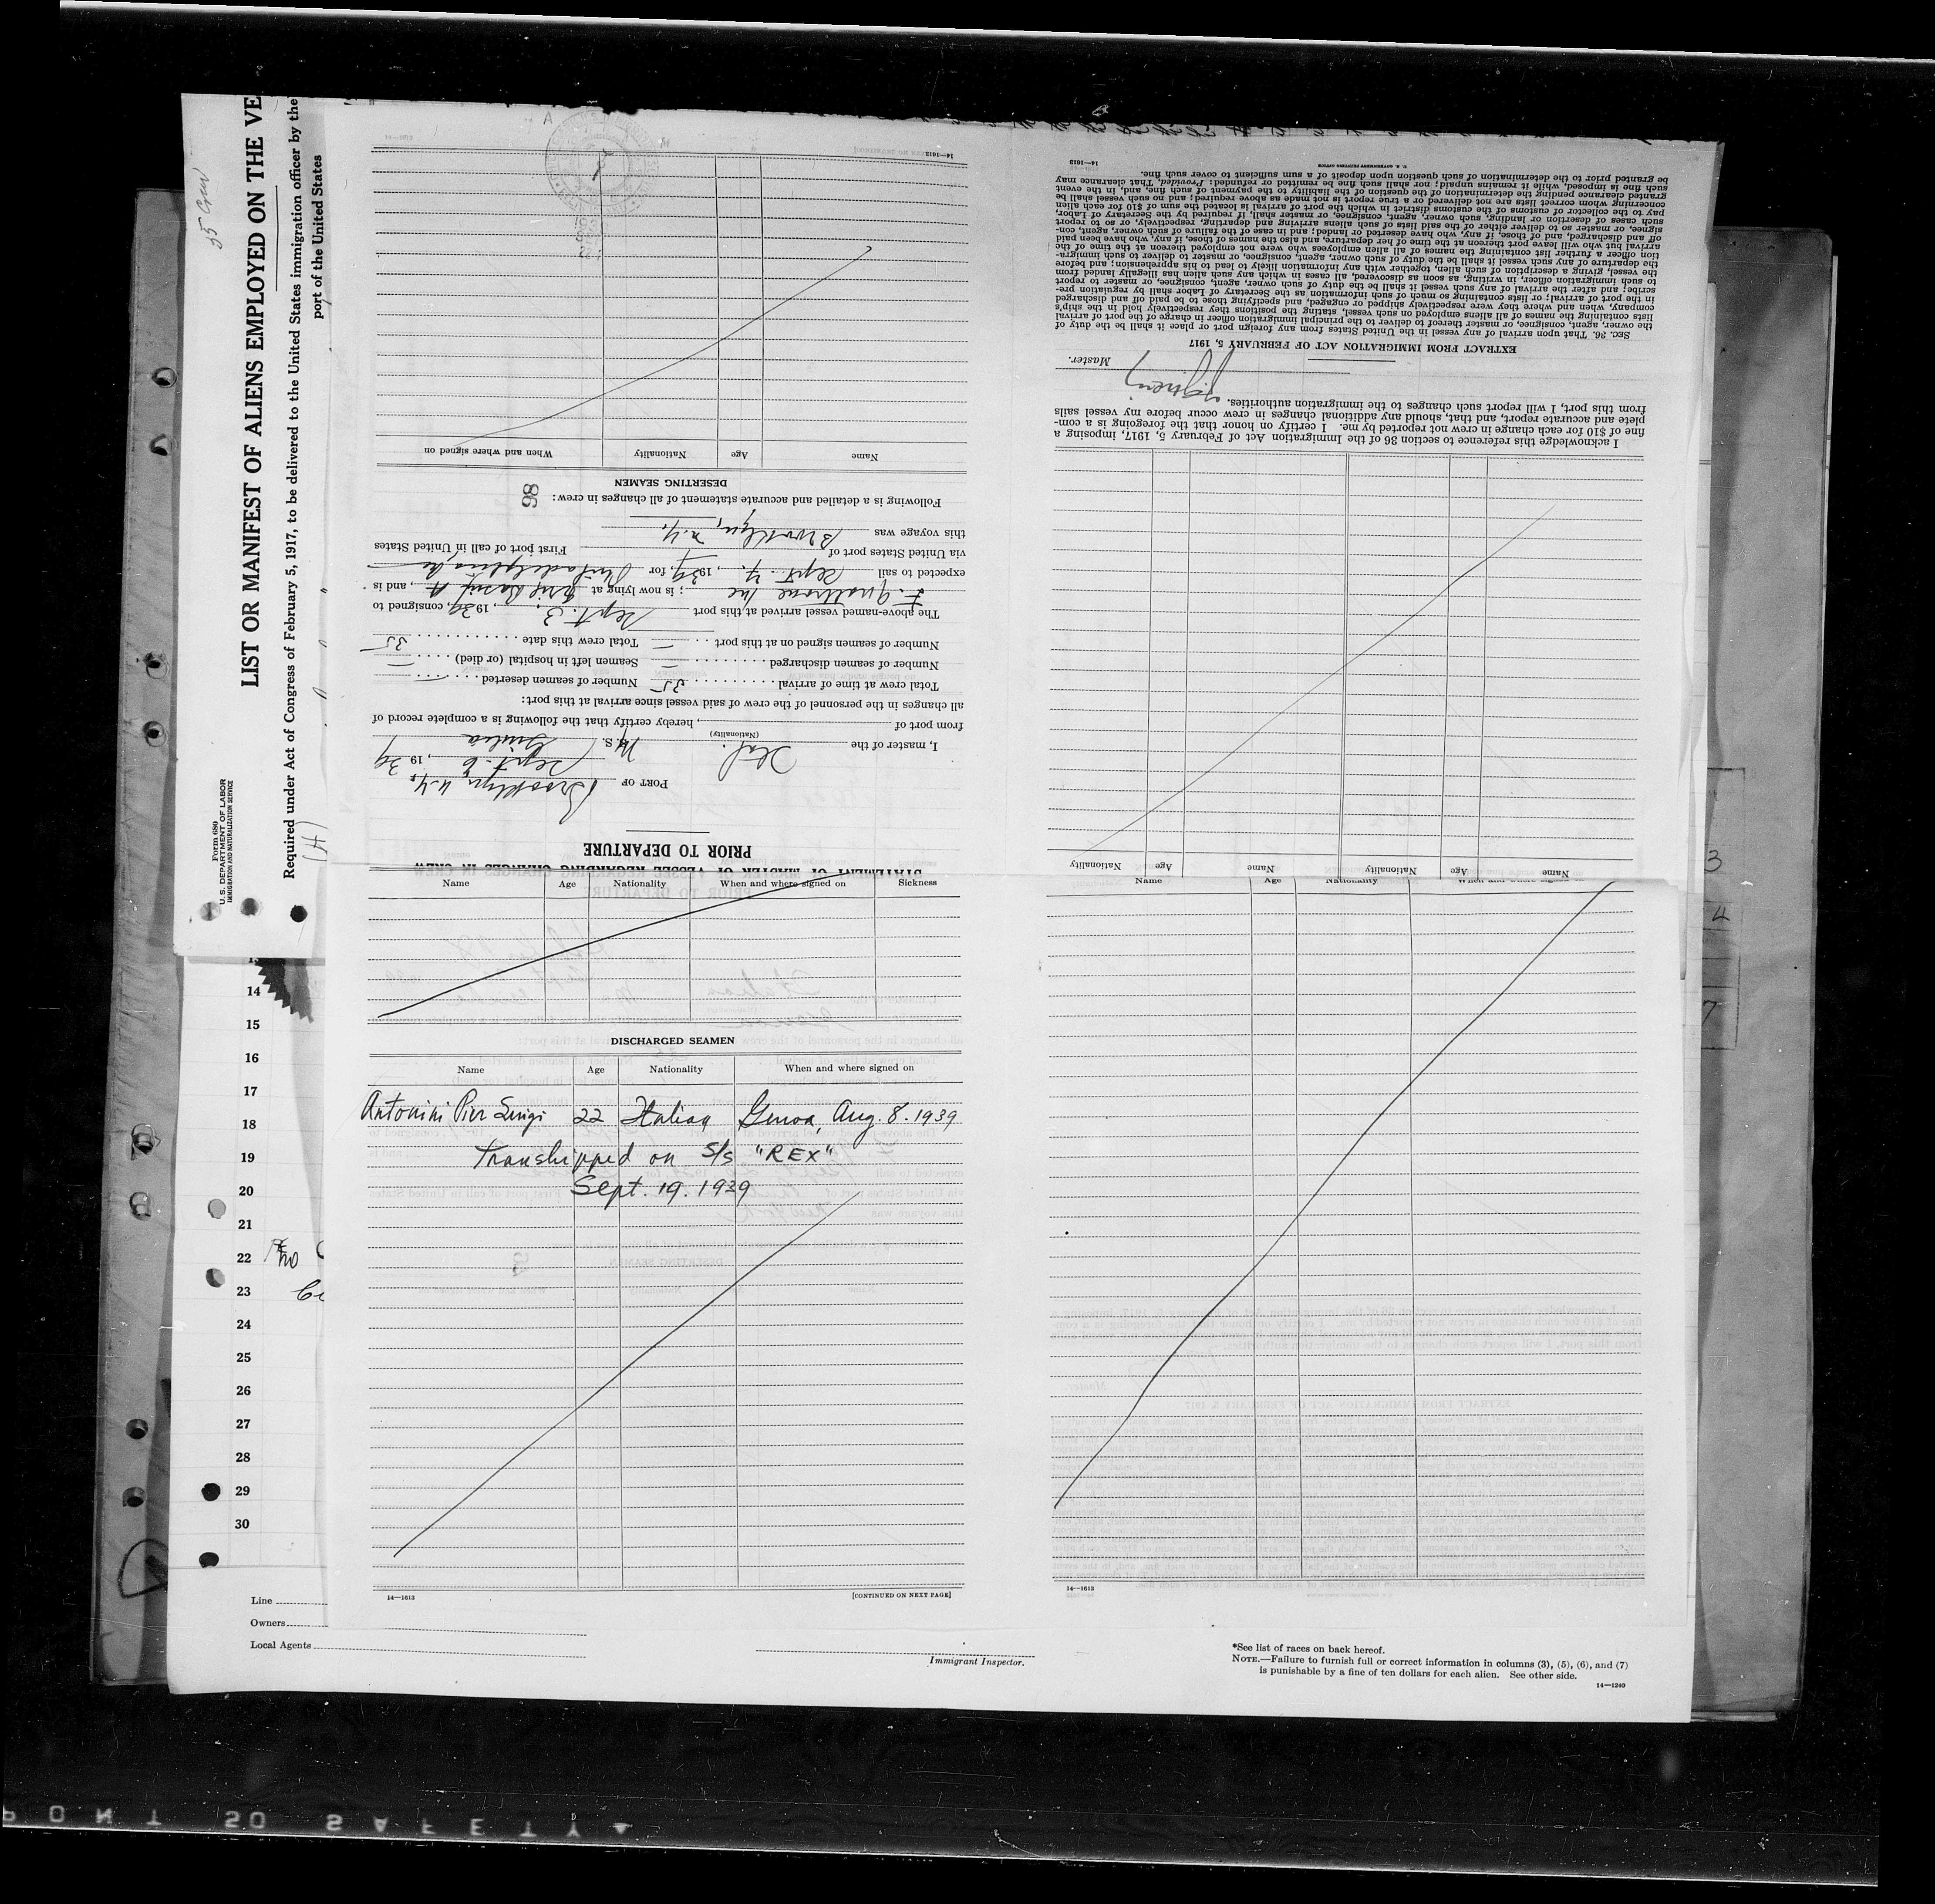 25 Crew
LIST OR MANIFEST OF ALIENS EMPLOYED ON THE VE
Required under Act of Congress of February 5, 1917, to be delivered to the United States immigration officer by the
port of the United States
Form 689
U. S. DEPARTMENT OF LABOR
IMMIGRATION AND NATURALIZATION SERVICE
(H)
STATEMENT OF MASTER OF VESSEL REGARDING CHANGES IN CREW
PRIOR TO DEPARTURE
PORT OF Brooklyn N.Y.
Sept. 6, 1939
I, master of the Ital. M. S. Giulia
(Nationality)
from port of , hereby certify that the following is a complete record of
all changes in the personnel of the crew of said vessel since arrival at this port:
Total crew at time of arrival 35 Number of seamen deserted —
Number of seamen discharged — Seamen left in hospital (or died) —
Number of seamen signed on at this port — Total crew this date 35
The above-named vessel arrived at this port Sept. 3, 1939, consigned to
Inc ; is now lying at , and is
expected to sail Sept. 7, 1939, for Philadelphia
via United States port of First port of call in United States
this voyage was Brooklyn, N.Y.
Following is a detailed and accurate statement of all changes in crew:
86
DESERTING SEAMEN
Name Age Nationality When and where signed on
14—1613
[CONTINUED ON NEXT PAGE]
Name Age Nationality Name Age Nationality
I acknowledge this reference to section 36 of the Immigration Act of February 5, 1917, imposing a
fine of $10 for each change in crew not reported by me. I certify on honor that the foregoing is a com-
plete and accurate report, and that, should any additional changes in crew occur before my vessel sails
from this port, I will report such changes to the immigration authorities.
Master.
EXTRACT FROM IMMIGRATION ACT OF FEBRUARY 5, 1917
SEC. 36. That upon arrival of any vessel in the United States from any foreign port or place it shall be the duty of
the owner, agent, consignee, or master thereof to deliver to the principal immigration officer in charge of the port of arrival
lists containing the names of all aliens employed on such vessel, stating the positions they respectively hold in the ship's
company, when and where they were respectively shipped or engaged, and specifying those to be paid off and discharged
in the port of arrival; or lists containing so much of such information as the Secretary of Labor shall by regulation pre-
scribe; and after the arrival of any such vessel it shall be the duty of such owner, agent, consignee, or master to report
to such immigration officer, in writing, as soon as discovered, all cases in which any such alien has illegally landed from
the vessel, giving a description of such alien, together with any information likely to lead to his apprehension; and before
the departure of any such vessel it shall be the duty of such owner, agent, consignee, or master to deliver to such immigra-
tion officer a further list containing the names of all alien employees who were not employed thereon at the time of the
arrival but who will leave port thereon at the time of her departure, and also the names of those, if any, who have been paid
off and discharged, and of those, if any, who have deserted or landed; and in case of the failure of such owner, agent, con-
signee, or master so to deliver either of the said lists of such aliens arriving and departing, respectively, or so to report
such cases of desertion or landing, such owner, agent, consignee, or master shall, if required by the Secretary of Labor,
pay to the collector of customs of the customs district in which the port of arrival is located the sum of $10 for each alien
concerning whom correct lists are not delivered or a true report is not made as above required; and no such vessel shall be
granted clearance pending the determination of the question of the liability to the payment of such fine, and, in the event
such fine is imposed, while it remains unpaid; nor shall such fine be remitted or refunded: Provided, That clearance may
be granted prior to the determination of such question upon deposit of a sum sufficient to cover such fine.
U. S. GOVERNMENT PRINTING OFFICE
14—1613
Name Age Nationality When and where signed on Sickness
DISCHARGED SEAMEN
Name Age Nationality When and where signed on
Antonini Pier Luigi 22 Italian Genoa, Aug. 8. 1939
Transhipped on S/s "REX"
Sept. 19. 1939
14—1613
[CONTINUED ON NEXT PAGE]
Name Age Nationality When and where signed on
14—1613
14
15
16
17
18
19
20
21
22
23
24
25
26
27
28
29
30
3
4
7
Line
Owners
Local Agents
Immigrant Inspector.
*See list of races on back hereof.
NOTE.—Failure to furnish full or correct information in columns (3), (5), (6), and (7)
is punishable by a fine of ten dollars for each alien. See other side.
14—1240
PONT 50 SAFETY